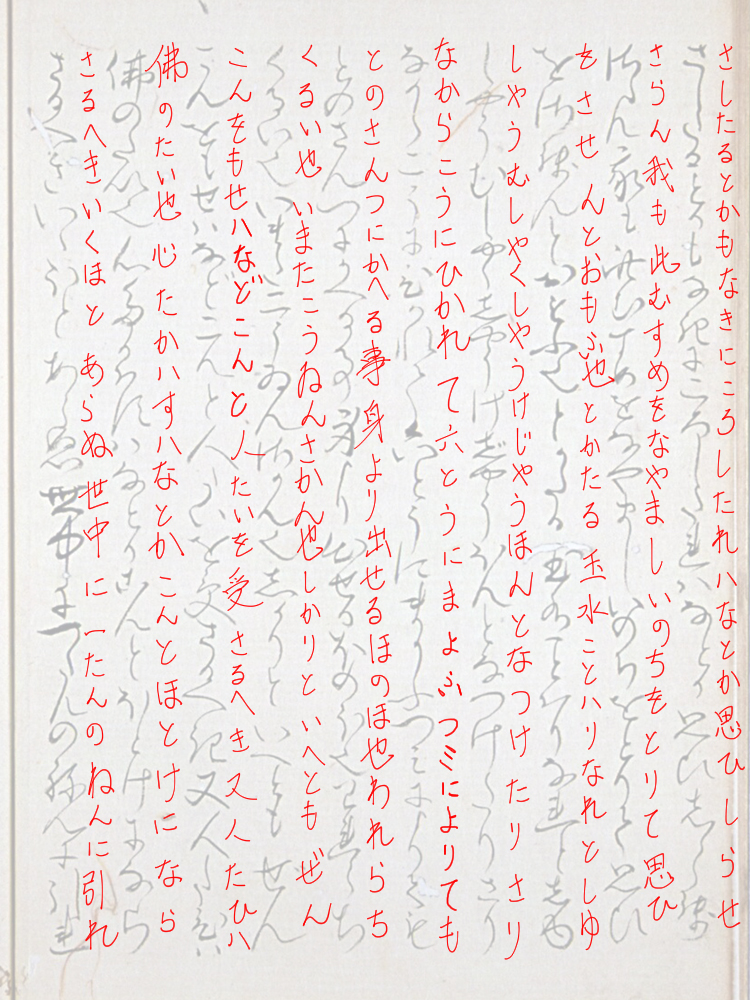 さしたるとかもなきにころしたれハなとか思ひしらせ
さらん我も此むすめをなやましいのちをとりて思ひ
をさせんとおもふ也とかたる玉水ことハりなれとしゆ
しやうむしやくしやうけじやうほんとなつけたりさり
なからこうにひかれて六とうにまよふつミによりても
とのさんつにかへる事身より出せるほのほ也われらち
くるい也いまたこうねんさかん也しかりといへともぜん
こんをもせハなどこんと人たいを受さるへき又人たひハ
佛のたい也心たかハすハなとかこんとほとけになら
さるへきいくほとあらぬ世中に一たんのねんに引れ